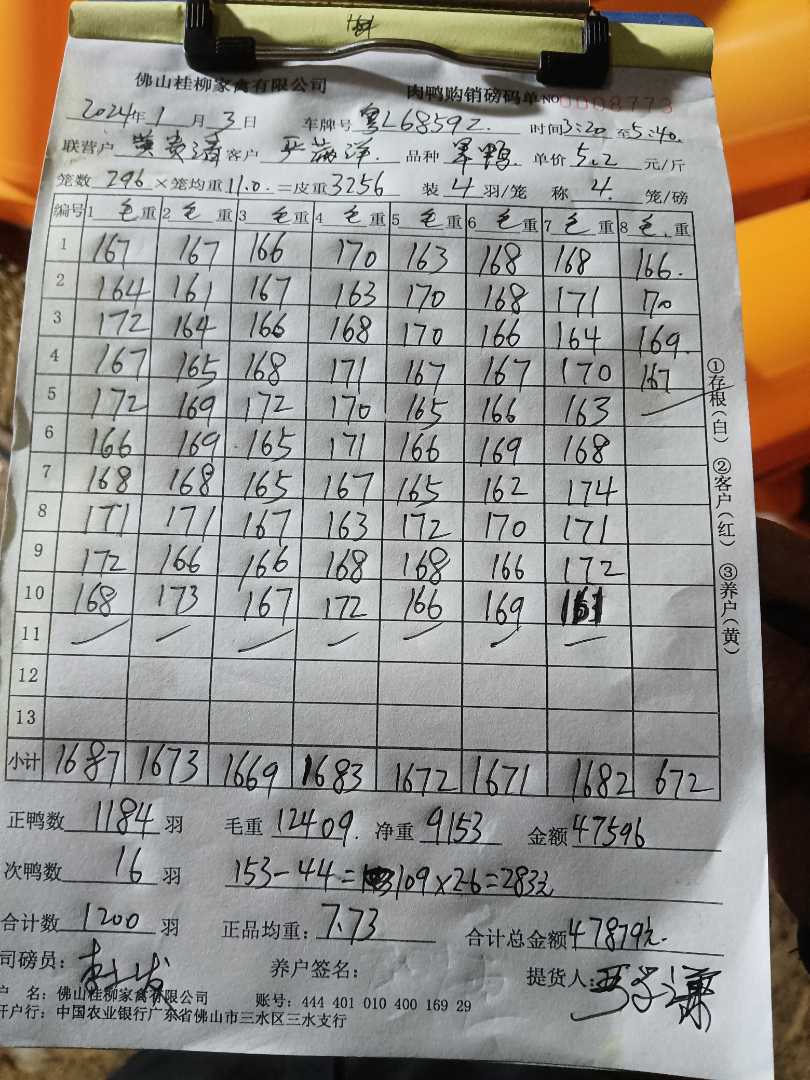 佛山桂柳家禽有限公司 肉鸭购销磅码单 NO 0008773
2024年1月3日 车牌号 粤L68592. 时间3:20 至5:40.
联营户 客户 品种 鸭 单价 5.2 元/斤
笼数 296 ×笼均重 11.0. =皮重 3256 装 4 羽/笼 称 4. 笼/磅
编号 1 毛重 2 毛重 3 毛重 4 毛重 5 毛重 6 毛重 7 毛重 8 毛重
1 167 167 166 170 163 168 168 166.
2 164 161 167 163 170 168 171 170
3 172 164 166 168 170 166 164 169.
4 167 165 168 171 167 167 170 167
5 172 169 172 170 165 166 163
6 166 169 165 171 166 169 168
7 168 168 165 167 165 162 174
8 171 171 167 163 172 170 171
9 172 166 166 168 168 166 172
10 168 173 167 172 166 169 161
11
12
13
小计 1687 1673 1669 1683 1672 1671 1682 672
正鸭数 1184 羽 毛重 12409. 净重 9153 金额 47596
次鸭数 16 羽 153-44=109×2.6=283元
合计数 1200 羽 正品均重: 7.73 合计总金额 47879元.
司磅员: 养户签名: 提货人:
户 名: 佛山桂柳家禽有限公司 账号: 444 401 010 400 169 29
开户行: 中国农业银行广东省佛山市三水区三水支行
①存根(白) ②客户(红) ③养户(黄)